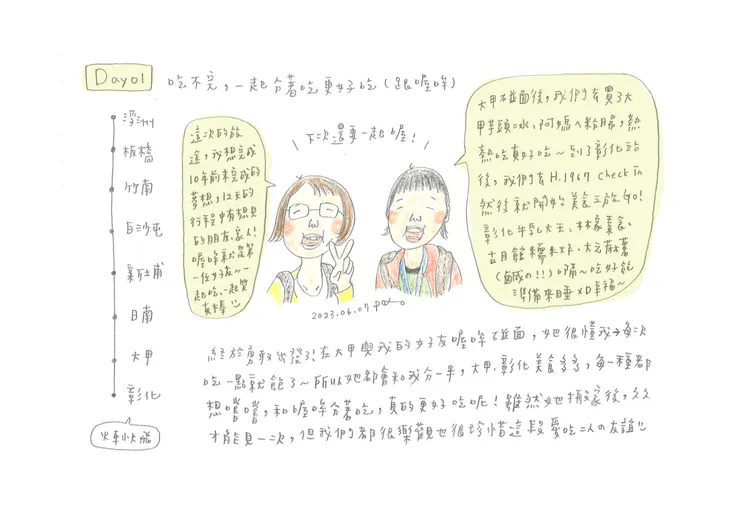 Day01
吃不完，一起分著吃更好吃（跟喔哞）
浮洲
板橋
竹南
白沙屯
新埔
日南
大甲
彰化
火車小旅
這次的旅
途，我想完成
10年前未完成的
夢想，12天的
行程中有想見
的朋友、家人！
喔哞就是第
一位好友～
一起吃、一起笑
真棒
下次還要一起喔！
大甲碰面後，我們去買了大
甲芋頭冰、阿嬤ㄟ粉腸，熱
熱吃真好吃～到了彰化站
後，我們去H.1967 Check in
然後就開始美食之旅Go!
彰化牛乳大王、林家素食、
古月館糯米炸、大元麻薯
（鹹の!!）嗝～吃好飽
準備來睡XD幸福～
2023.06.07
終於勇敢出發了！在大甲與我的好友喔哞碰面，她很懂我→每次
吃一點就飽了～所以她都會和我分一半，大甲、彰化美食多多，每一種都
想嚐嚐，和喔哞分著吃，真的更好吃呢！雖然她搬家後，久久
才能見一次，但我們都很樂觀也很珍惜這段愛吃二人の友誼